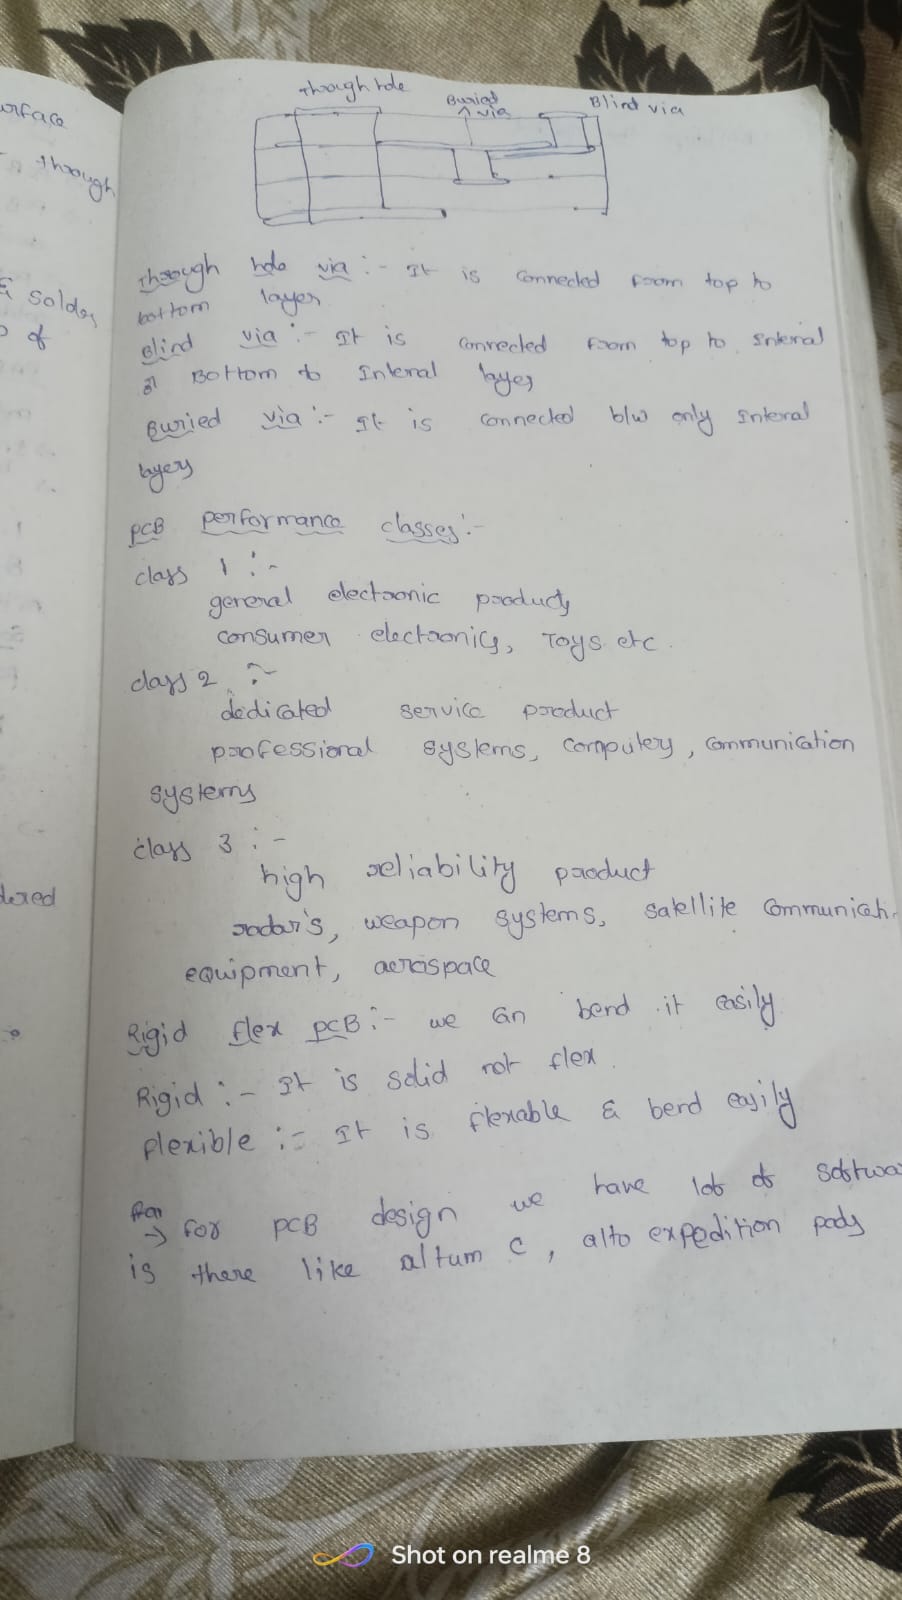 urface
through
& solder
of
dered
Through hole
Buried via
Blind via
Through hole via :- It is connected from top to
bottom layer
Blind via :- It is connected from top to Internal
or Bottom to Internal layer
Buried via :- It is connected b/w only Internal
layers
PCB performance classes :-
class 1 :-
general electronic products
consumer electronics, Toys etc.
class 2 :-
dedicated service product
professional systems, computers, communication
systems
class 3 :-
high reliability product
radar's, weapon systems, satellite communicati
equipment, aerospace
Rigid flex PCB :- we can bend it easily
Rigid :- It is solid not flex.
flexible :- It is flexable & bend easily
→ for PCB design we have lot of softwa
is there like altum C, alto expedition pads
Shot on realme 8